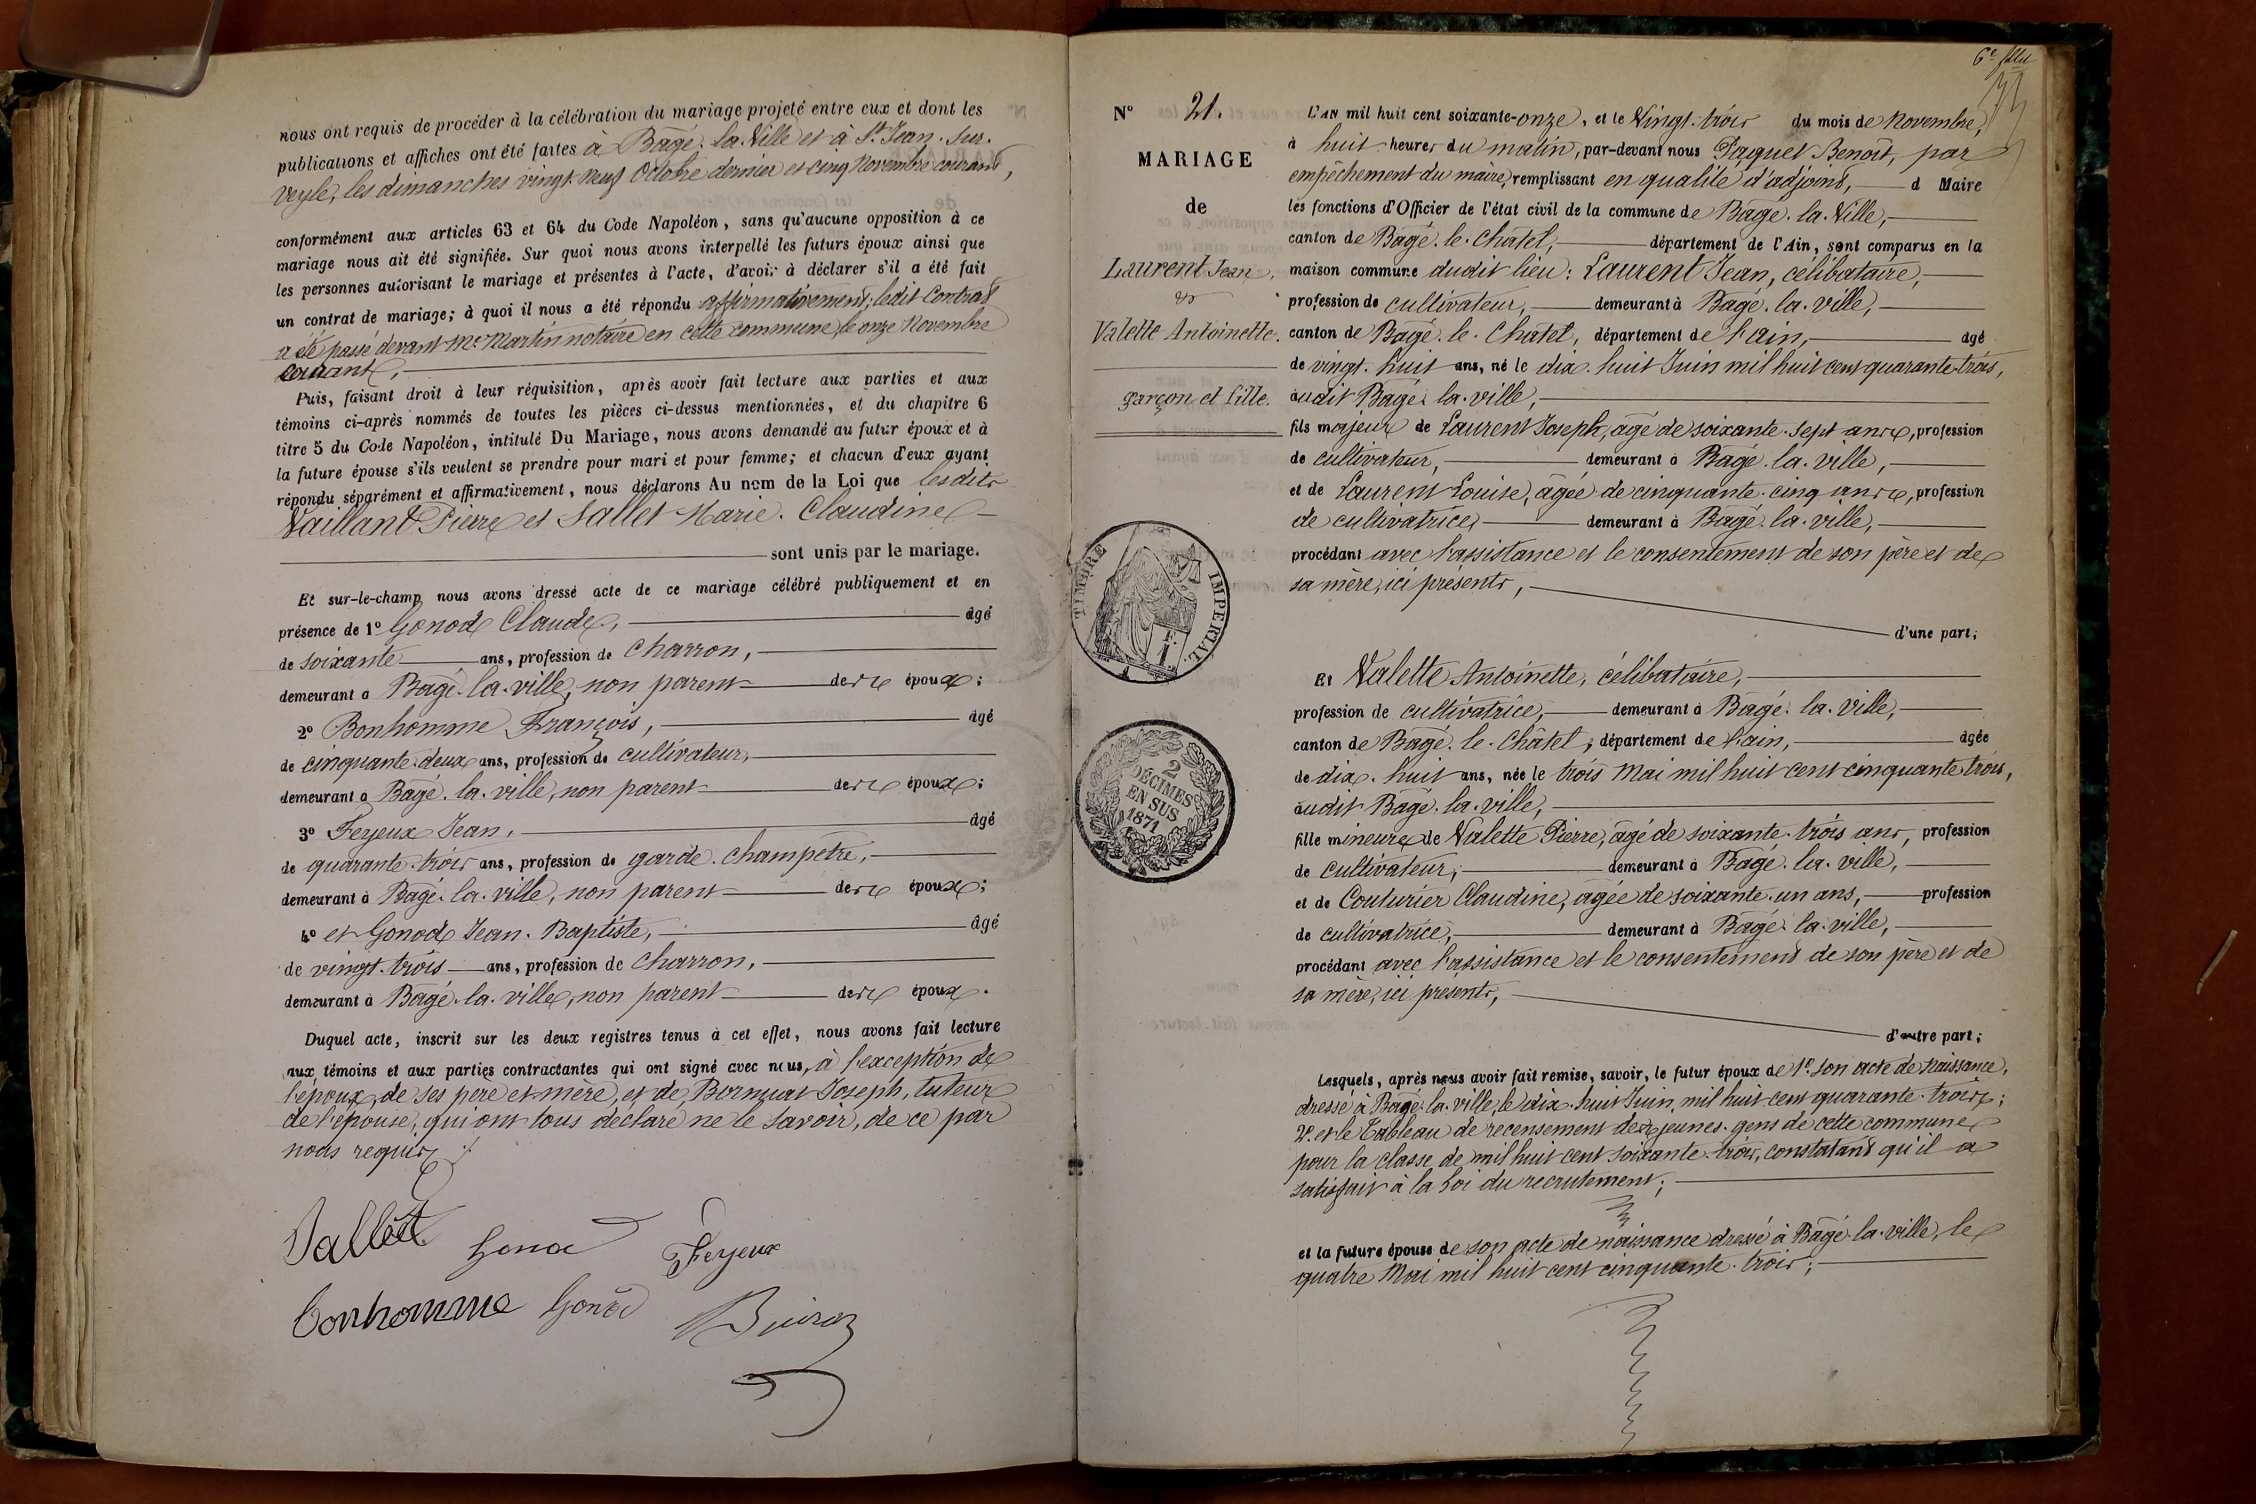 nous ont requis de procéder à la célébration du mariage projeté entre eux et dont les
publications et affiches ont été faites à Bâgé-la-Ville et à St Jean-sur-
Veyle, les dimanches vingt-neuf Octobre dernier et cinq Novembre courant,
conformément aux articles 63 et 64 du Code Napoléon, sans qu'aucune opposition à ce
mariage nous ait été signifiée. Sur quoi nous avons interpellé les futurs époux ainsi que
les personnes autorisant le mariage et présentes à l'acte, d'avoir à déclarer s'il a été fait
un contrat de mariage; à quoi il nous a été répondu affirmativement; ledit Contrat
a été passé devant Me Martin notaire en cette commune, le onze Novembre
courant,
Puis, faisant droit à leur réquisition, après avoir fait lecture aux parties et aux
témoins ci-après nommés de toutes les pièces ci-dessus mentionnées, et du chapitre 6
titre 5 du Code Napoléon, intitulé Du Mariage, nous avons demandé au futur époux et à
la future épouse s'ils veulent se prendre pour mari et pour femme; et chacun d'eux ayant
répondu séparément et affirmativement, nous déclarons Au nom de la Loi que lesdits
Vaillant Pierre et Sallet Marie-Claudine
sont unis par le mariage.
Et sur-le-champ nous avons dressé acte de ce mariage célébré publiquement et en
présence de 1º Gonod Claude, âgé
de soixante ans, profession de Charron,
demeurant à Bâgé-la-ville, non parent des époux;
2º Bonhomme François, âgé
de cinquante-deux ans, profession de cultivateur,
demeurant à Bâgé-la-ville, non parent des époux;
3º Feyeux Jean, âgé
de quarante-trois ans, profession de garde-champêtre,
demeurant à Bâgé-la-ville, non parent des époux;
4º et Gonod Jean-Baptiste, âgé
de vingt-trois ans, profession de Charron,
demeurant à Bâgé-la-ville, non parent des époux.
Duquel acte, inscrit sur les deux registres tenus à cet effet, nous avons fait lecture
aux témoins et aux parties contractantes qui ont signé avec nous, à l'exception de
l'époux, de ses père et mère, et de Bornuat Joseph, tuteur
de l'épouse, qui ont tous déclaré ne le savoir, de ce par
nous requis
Sallet Gonod Feyeux
bonhomme Gonod
6e
Nº 21.
MARIAGE
de
Laurent Jean,
&
Valette Antoinette.
garçon et fille.
TIMBRE IMPERIAL
2 DÉCIMES EN SUS 1871
L'AN mil huit cent soixante-onze, et le Vingt-trois du mois de Novembre,
à huit heures du matin, par-devant nous Paquet Benoît, par
empêchement du maire, remplissant en qualité d'adjoint, d Maire
les fonctions d'Officier de l'état civil de la commune de Bâgé-la-Ville,
canton de Bâgé-le-Châtel, département de l'Ain, sont comparus en la
maison commune dudit lieu: Laurent Jean, célibataire,
profession de cultivateur, demeurant à Bâgé-la-ville,
canton de Bâgé-le-Châtel, département de l'ain, âgé
de vingt-huit ans, né le dix-huit Juin mil huit cent quarante-trois,
audit Bâgé-la-ville,
fils majeur de Laurent Joseph, âgé de soixante-sept ans, profession
de cultivateur, demeurant à Bâgé-la-ville,
et de Laurent Louise, âgée de cinquante-cinq ans, profession
de cultivatrice, demeurant à Bâgé-la-ville,
procédant avec l'assistance et le consentement de son père et de
sa mère, ici présents,
d'une part;
Et Valette Antoinette, célibataire,
profession de cultivatrice, demeurant à Bâgé-la-ville,
canton de Bâgé-le-Châtel, département de l'ain, âgée
de dix-huit ans, née le trois Mai mil huit cent cinquante-trois,
audit Bâgé-la-ville,
fille mineure de Valette Pierre, âgé de soixante-trois ans, profession
de cultivateur, demeurant à Bâgé-la-ville,
et de Couturier Claudine, âgée de soixante-un ans, profession
de cultivatrice, demeurant à Bâgé-la-ville,
procédant avec l'assistance et le consentement de son père et de
sa mère, ici présents,
d'autre part;
Lesquels, après nous avoir fait remise, savoir, le futur époux de 1º son acte de naissance,
dressé à Bâgé-la-ville, le dix-huit Juin mil huit cent quarante-trois;
2º et le Tableau de recensement des jeunes-gens de cette commune
pour la classe de mil huit cent soixante-trois, constatant qu'il a
satisfait à la Loi du recrutement;
et la future épouse de son acte de naissance dressé à Bâgé-la-ville, le
quatre Mai mil huit cent cinquante-trois;